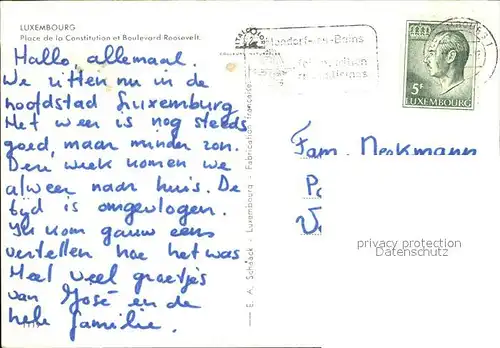 LUXEMBOURG
Place de la Constitution et Boulevard Roosevelt.
Hallo, allemaal.
We zitten nu in de
hoofdstad Luxemburg
Het weer is nog steeds
goed, maar minder zon.
Deze week komen we
alweer naar huis. De
tijd is omgevlogen.
Ik kom gauw eens
vertellen hoe het was
Heel veel groetjes
van José en de
hele familie.
E. A. Schaack - Luxembourg - Fabrication française
Mondorf-les-Bains
5F
LUXEMBOURG
Fam. Neskmann
privacy protection
Datenschutz